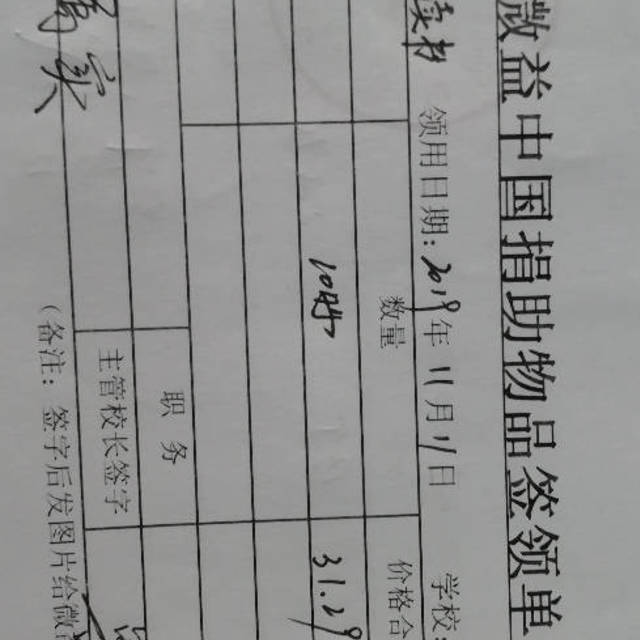 微益中国捐助物品签领单
读书 领用日期：2019年11月11日 学校：
数量 价格合
31.29
职务
主管校长签字
（备注：签字后发图片给微